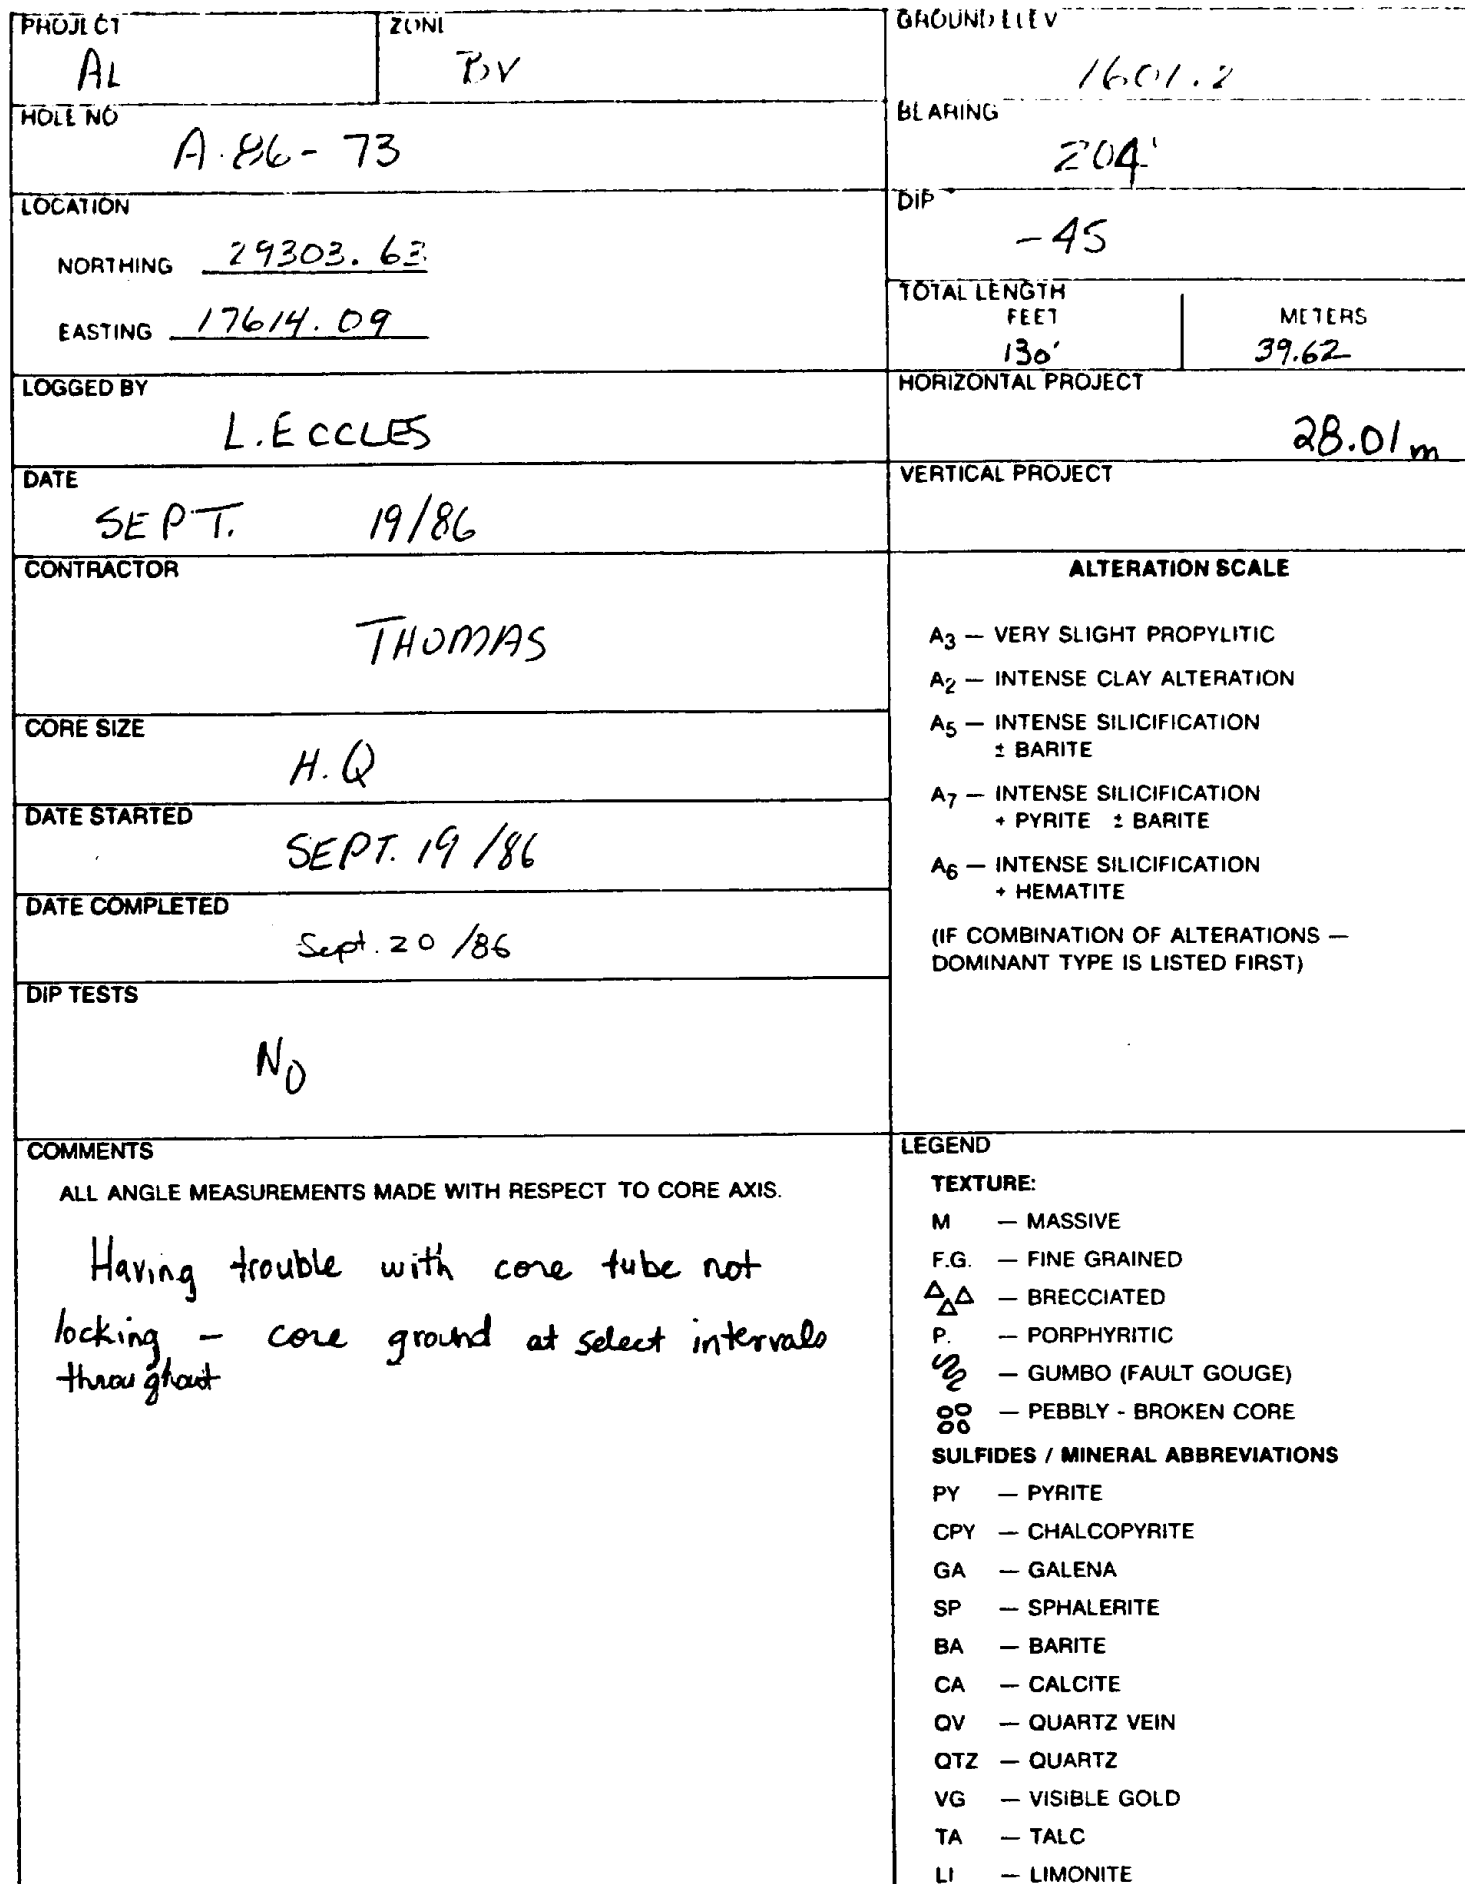 PROJECT
AL
ZONE
BV
HOLE NO
A-86-73
LOCATION
NORTHING 29303.63
EASTING 17614.09
LOGGED BY
L. ECCLES
DATE
SEPT. 19/86
CONTRACTOR
THOMAS
CORE SIZE
H.Q
DATE STARTED
SEPT. 19/86
DATE COMPLETED
Sept. 20/86
DIP TESTS
NO
COMMENTS
ALL ANGLE MEASUREMENTS MADE WITH RESPECT TO CORE AXIS.
Having trouble with core tube not
locking - core ground at select intervals
throughout
GROUND ELEV
1601.2
BEARING
204°
DIP
-45
TOTAL LENGTH
FEET METERS
130' 39.62
HORIZONTAL PROJECT
28.01 m
VERTICAL PROJECT
ALTERATION SCALE
A3 — VERY SLIGHT PROPYLITIC
A2 — INTENSE CLAY ALTERATION
A5 — INTENSE SILICIFICATION
± BARITE
A7 — INTENSE SILICIFICATION
+ PYRITE ± BARITE
A6 — INTENSE SILICIFICATION
+ HEMATITE
(IF COMBINATION OF ALTERATIONS —
DOMINANT TYPE IS LISTED FIRST)
LEGEND
TEXTURE:
M — MASSIVE
F.G. — FINE GRAINED
— BRECCIATED
P. — PORPHYRITIC
— GUMBO (FAULT GOUGE)
— PEBBLY - BROKEN CORE
SULFIDES / MINERAL ABBREVIATIONS
PY — PYRITE
CPY — CHALCOPYRITE
GA — GALENA
SP — SPHALERITE
BA — BARITE
CA — CALCITE
QV — QUARTZ VEIN
QTZ — QUARTZ
VG — VISIBLE GOLD
TA — TALC
LI — LIMONITE